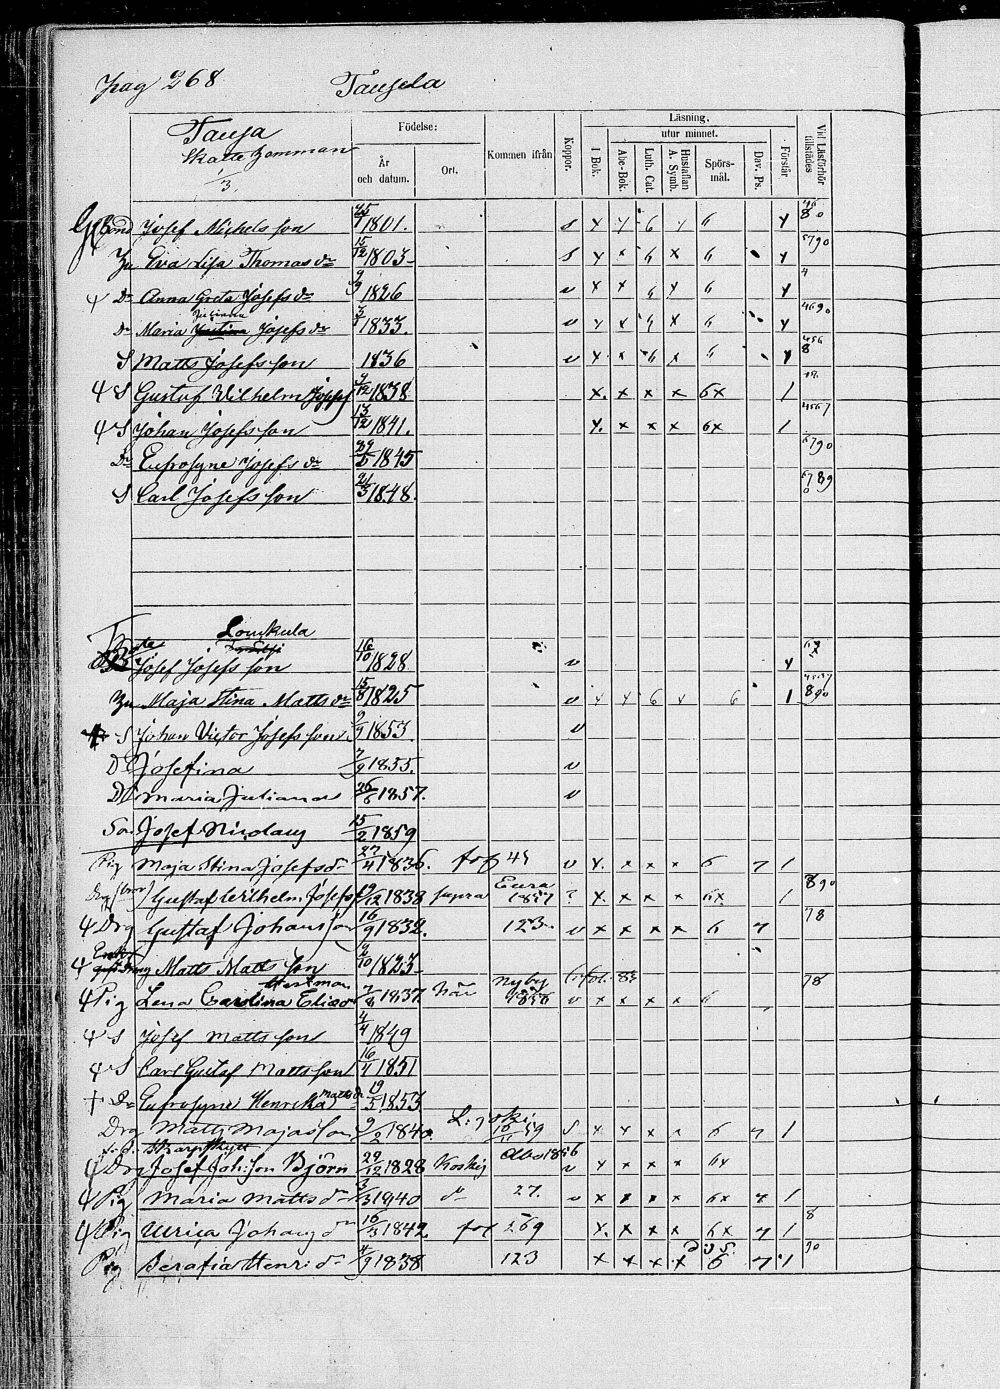 pag 268 Tausela
Tausa
Skatte hemman
1/3
Födelse:
År och datum.
Ort.
Kommen ifrån
Koppor.
Läsning.
I Bok.
utur minnet.
Abc-Bok.
Luth. Cat.
Hustaflan A. Symb.
Spörsmål.
Dav. Ps.
Förstår
Vid Läsförhör tillstädes
Bond Josef Michelsson 1801. s x y 6 y 6 y
Hu Eva Lisa Thomas dr 15/12 1803 s x x 6 x 6 y 5790
Dr Anna Greta Josefs dr 9/9 1826 v x x 6 y 6 y
Juliana
Dr Maria Justina Josefs dr 3/7 1833. v y x 6 x 6 y 4690
S Matts Josefsson 1836 v y x 6 x 6 y 456 8
S Gustaf Vilhelm Josefss 9/12 1838 x x x x 6x /
S Johan Josefsson 13/12 1841. x x x x 6x / 4567
Dr Eufrosyne Josefs dr 1845 6790
S Carl Josefsson 21/3 1848. 6789 0
Lonskula
Josef Josefsson 16/10 1828 v y 67
Hu Maja Stina Matts dr 15/8 1825 v y y 6 y 6 / 890
S Johan Victor Josefsson 9/9 1853 v
D Josefina 7/9 1855. v
D Maria Juliana 26/6 1857. v
So. Josef Nicolaus 15/2 1859
Pig Maja Stina Josefs dr 27/4 1836. fol 45 v x x x x 6 7 /
Drg (bror) Gustaf Wilhelm Josefss 19/12 1838 supra Eura 1857 ? x x x x 6x / 890
Drg Gustaf Johansson 16/9 1832. 123 v x x x x 6 7 78
Matts Mattsson 2/10 1823
Westman
Pig Lena Carolina Elias dr 7/8 1837 här Nyby 1858 fol. 83 v x x x x 6 78
S Josef Mattsson 4/4 1849
S Carl Gustaf Mattsson 16/4 1851
Dr Eufrosyne Henrika Matts dr 19/5 1853
Drg Matts Majasson 9/2 1840. L. joki 59 s x x x x 6 7 /
Drg Josef Joh:sson Björn 29/12 1828 Koskis Åbo 1856 v y x x x 6x
Pig Maria Matts dr 3/3 1940 dr 27. v x x x x 6x 7 /
Pig Ulrica Johans dr 16/3 1842. fol 269 x x x x 6x 7 / 8
Pig Serafia Henr: dr 4/9 1838 123 x x x x 6 7 / 90